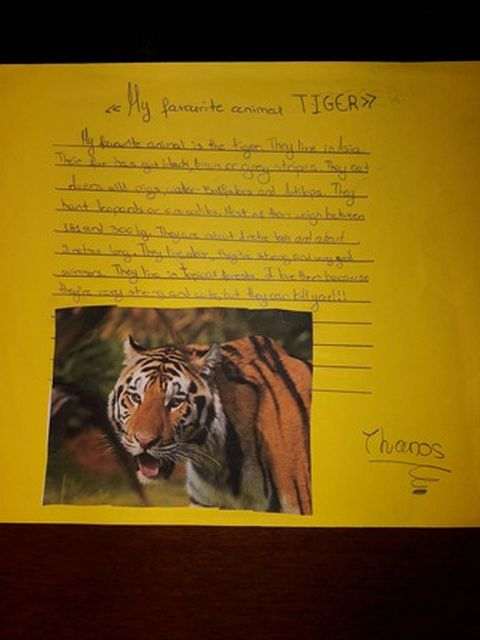 «My favourite animal TIGER»
My favourite animal is the tiger. They live in Asia.
Their fur has got black, brown or grey stripes. They eat
deers, wild pigs, water buffaloes and antilops. They
hunt leopards or crocodiles. Most of them weigh between
and 300 kg. They are about 1 metre tall and about
metres long. They are strong and very good
swimmers. They live in tropical forests. I like them because
they're very strong and cute, but they can kill you!!!
Thanos